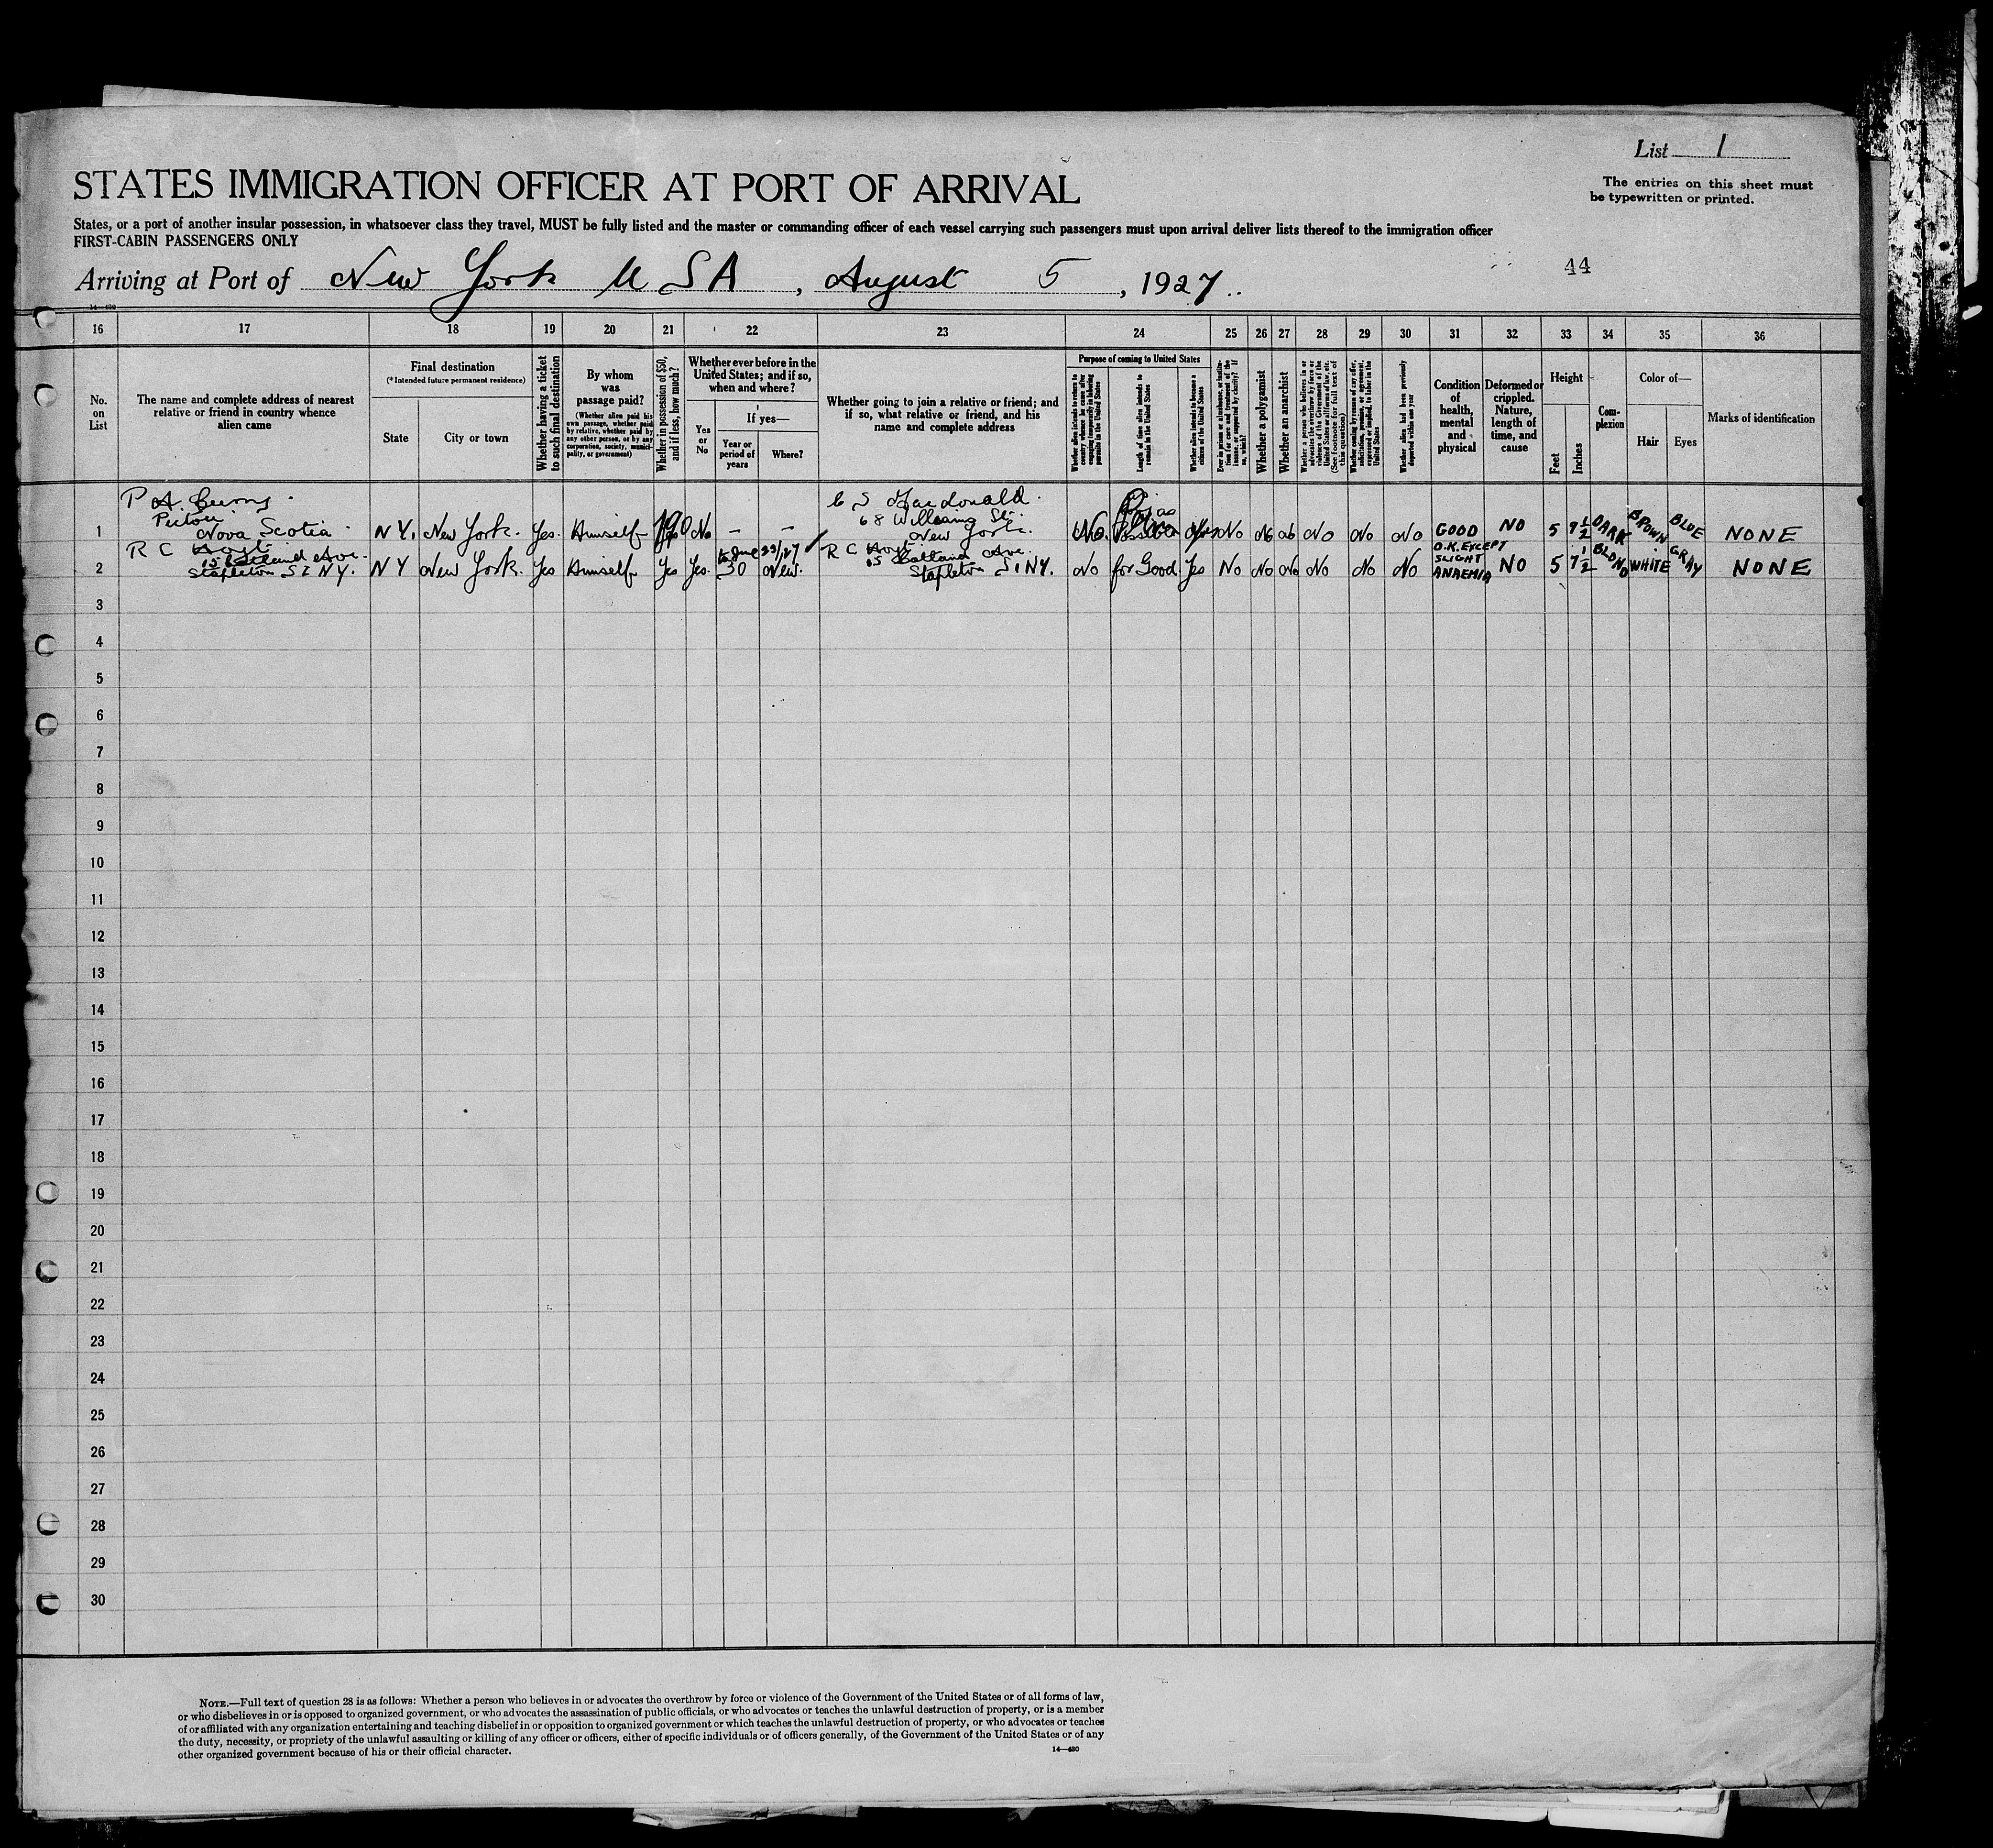 List 1
The entries on this sheet must
be typewritten or printed.
STATES IMMIGRATION OFFICER AT PORT OF ARRIVAL
States, or a port of another insular possession, in whatsoever class they travel, MUST be fully listed and the master or commanding officer of each vessel carrying such passengers must upon arrival deliver lists thereof to the immigration officer
FIRST-CABIN PASSENGERS ONLY
44
Arriving at Port of New York U S A, August 5, 1927
14—430
16 17 18 19 20 21 22 23 24 25 26 27 28 29 30 31 32 33 34 35 36
No.
on
List
The name and complete address of nearest
relative or friend in country whence
alien came
Final destination
(*Intended future permanent residence)
State
City or town
Whether having a ticket
to such final destination
By whom
was
passage paid?
(Whether alien paid his
own passage, whether paid
by relative, whether paid by
any other person, or by any
corporation, society, munici-
pality, or government)
Whether in possession of $50,
and if less, how much?
Whether ever before in the
United States; and if so,
when and where?
Yes
or
No
If yes—
Year or
period of
years
Where?
Whether going to join a relative or friend; and
if so, what relative or friend, and his
name and complete address
Purpose of coming to United States
Whether alien intends to return to
country whence he came after
engaging temporarily in laboring
pursuits in the United States
Length of time alien intends to
remain in the United States
Whether alien intends to become a
citizen of the United States
Ever in prison or almshouse, or institu-
tion for care and treatment of the
insane, or supported by charity? If
so, which?
Whether a polygamist
Whether an anarchist
Whether a person who believes in or
advocates the overthrow by force or
violence of the Government of the
United States or all forms of law, etc.
(See footnote for full text of
this question)
Whether coming by reason of any offer,
solicitation, promise, or agreement,
expressed or implied, to labor in the
United States
Whether alien had been previously
deported within one year
Condition
of
health,
mental
and
physical
Deformed or
crippled.
Nature,
length of
time, and
cause
Height
Feet
Inches
Com-
plexion
Color of—
Hair
Eyes
Marks of identification
P A Burns
Pictou
Nova Scotia
1 N Y. New York. Yes. Himself No – –
C S Macdonald
68 Williams St.
New York.
No. Possible No No No No No No GOOD NO 5 9 1/2 DARK BROWN BLUE NONE
R C
Stapleton S I N Y.
2 N Y New York. Yes Himself Yes Yes. 30 New.
R C
15 Ave.
Stapleton S I N Y.
No for Good Yes No No No No No No O.K. EXCEPT
SLIGHT
ANAEMIA
NO 5 7 1/2 BLOND WHITE GRAY NONE
3
4
5
6
7
8
9
10
11
12
13
14
15
16
17
18
19
20
21
22
23
24
25
26
27
28
29
30
NOTE.—Full text of question 28 is as follows: Whether a person who believes in or advocates the overthrow by force or violence of the Government of the United States or of all forms of law,
or who disbelieves in or is opposed to organized government, or who advocates the assassination of public officials, or who advocates or teaches the unlawful destruction of property, or is a member
of or affiliated with any organization entertaining and teaching disbelief in or opposition to organized government or which teaches the unlawful destruction of property, or who advocates or teaches
the duty, necessity, or propriety of the unlawful assaulting or killing of any officer or officers, either of specific individuals or of officers generally, of the Government of the United States or of any
other organized government because of his or their official character.
14—430